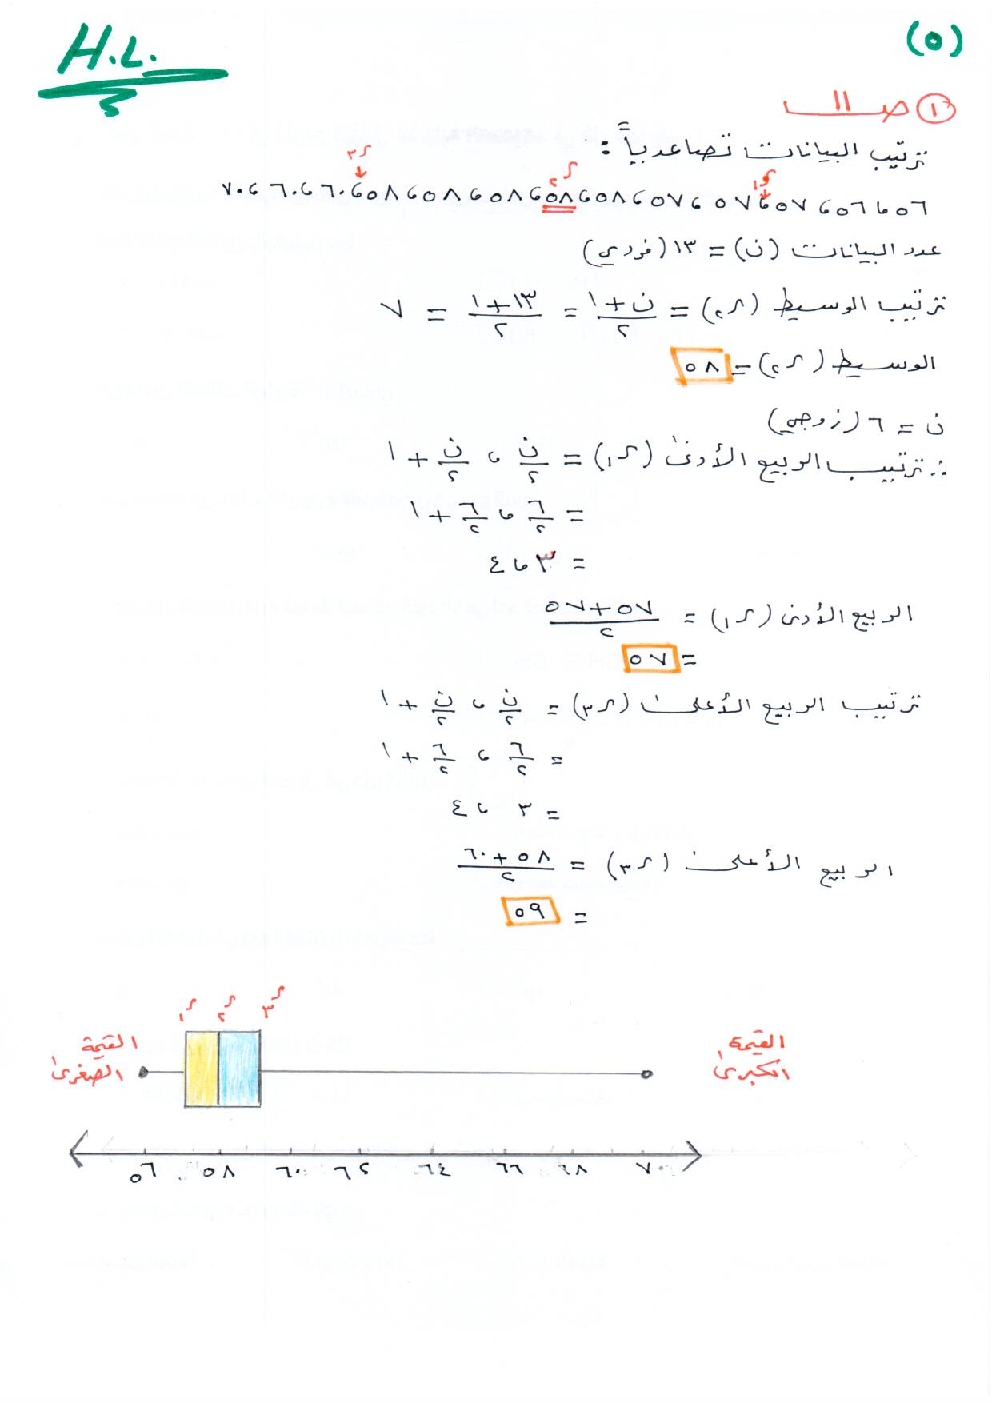 H.L.
(٥)
① ص ١١
ترتيب البيانات تصاعدياً :
٥٦ ، ٥٦ ، ٥٧ ، ٥٧ ، ٥٧ ، ٥٨ ، ٥٨ ، ٥٨ ، ٥٨ ، ٥٨ ، ٦٠ ، ٦٠ ، ٧٠
ر١ ر٢ ر٣
عدد البيانات (ن) = ١٣ (فردي)
ترتيب الوسيط (ر٢) = ن+١/٢ = ١٣+١/٢ = ٧
الوسيط (ر٢) = ٥٨
ن = ٦ (زوجي)
∴ ترتيب الربيع الأدنى (ر١) = ن/٢ ، ن/٢ + ١
= ٦/٢ ، ٦/٢ + ١
= ٣ ، ٤
الربيع الأدنى (ر١) = ٥٧+٥٧/٢
= ٥٧
ترتيب الربيع الأعلى (ر٣) = ن/٢ ، ن/٢ + ١
= ٦/٢ ، ٦/٢ + ١
= ٣ ، ٤
الربيع الأعلى (ر٣) = ٥٨+٦٠/٢
= ٥٩
ر١ ر٢ ر٣
القيمة الصغرى
القيمة الكبرى
٥٦ ٥٨ ٦٠ ٦٢ ٦٤ ٦٦ ٦٨ ٧٠